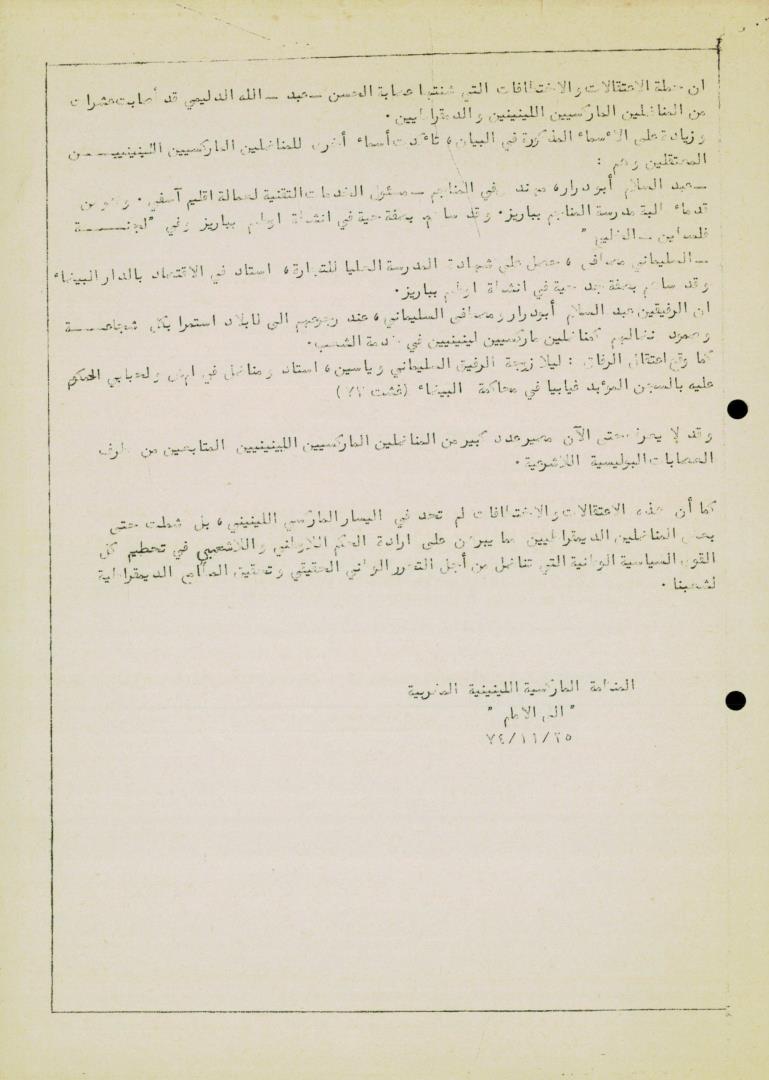 ان حملة الاعتقالات والاختطافات التي شنتها عصابة الحسن ـ عبد ـ الله الدليمي قد أصابت عشرات
من المناضلين الماركسيين اللينينيين والديمقراطيين .
وزيادة على الاسماء المذكورة في البيان ، تأكدت أسماء أخرى للمناضلين الماركسيين اللينينييــــن
المعتقلين وهم :
ـ عبد السلام أبودرار ، مهندس في المناجم ـ مسئول الخدمات التقنية لعمالة اقليم آسفي . وهو من
قدماء طلبة مدرسة المناجم بباريز . وقد ساهم بصفة حية في انشطة اوطم بباريز وفي " لجنــــــة
فلسطين ـ الخليج "
ـ السليماني مصطفى ، حصل على شهادة المدرسة العليا للتجارة ، استاد في الاقتصاد بالدار البيضاء
وقد ساهم بصفة جد حية في انشطة اوطم بباريز .
ان الرفيقين عبد السلام أبودرار ومصطفى السليماني ، عند رجوعهم الى البلاد استمرا بكل شجاعــــة
وصمود نضالهم كمناضلين ماركسيين لينينيين في خدمة الشعب .
كما وقع اعتقال الرفاق : ليلا زوجة الرفيق السليماني وياسين ، استاد ومناضل في اوطم ولحبابي الحكوم
عليه بالسجن المؤبد غيابيا في محاكمة البيضاء ( غشت ٧٣ )
وقد لا يعرف حتى الآن مصير عدد كبير من المناضلين الماركسيين اللينينيين المتابعين من طرف
العصابات البوليسية اللاشرعية .
كما أن هذه الاعتقالات والاختطافات لم تحد في اليسار الماركسي اللينيني ، بل شملت حتى
بعض المناضلين الديمقراطيين مما يبرهن على ارادة الحكم اللاوطني واللاشعبي في تحطيم كل
القوى السياسية الوطنية التي تناضل من أجل التحرر الوطني الحقيقي وتحقيق المطامح الديمقراطية
لشعبنا .
المنظمة الماركسية اللينينية المغربية
" الى الامام "
٧٤/١١/٢٥